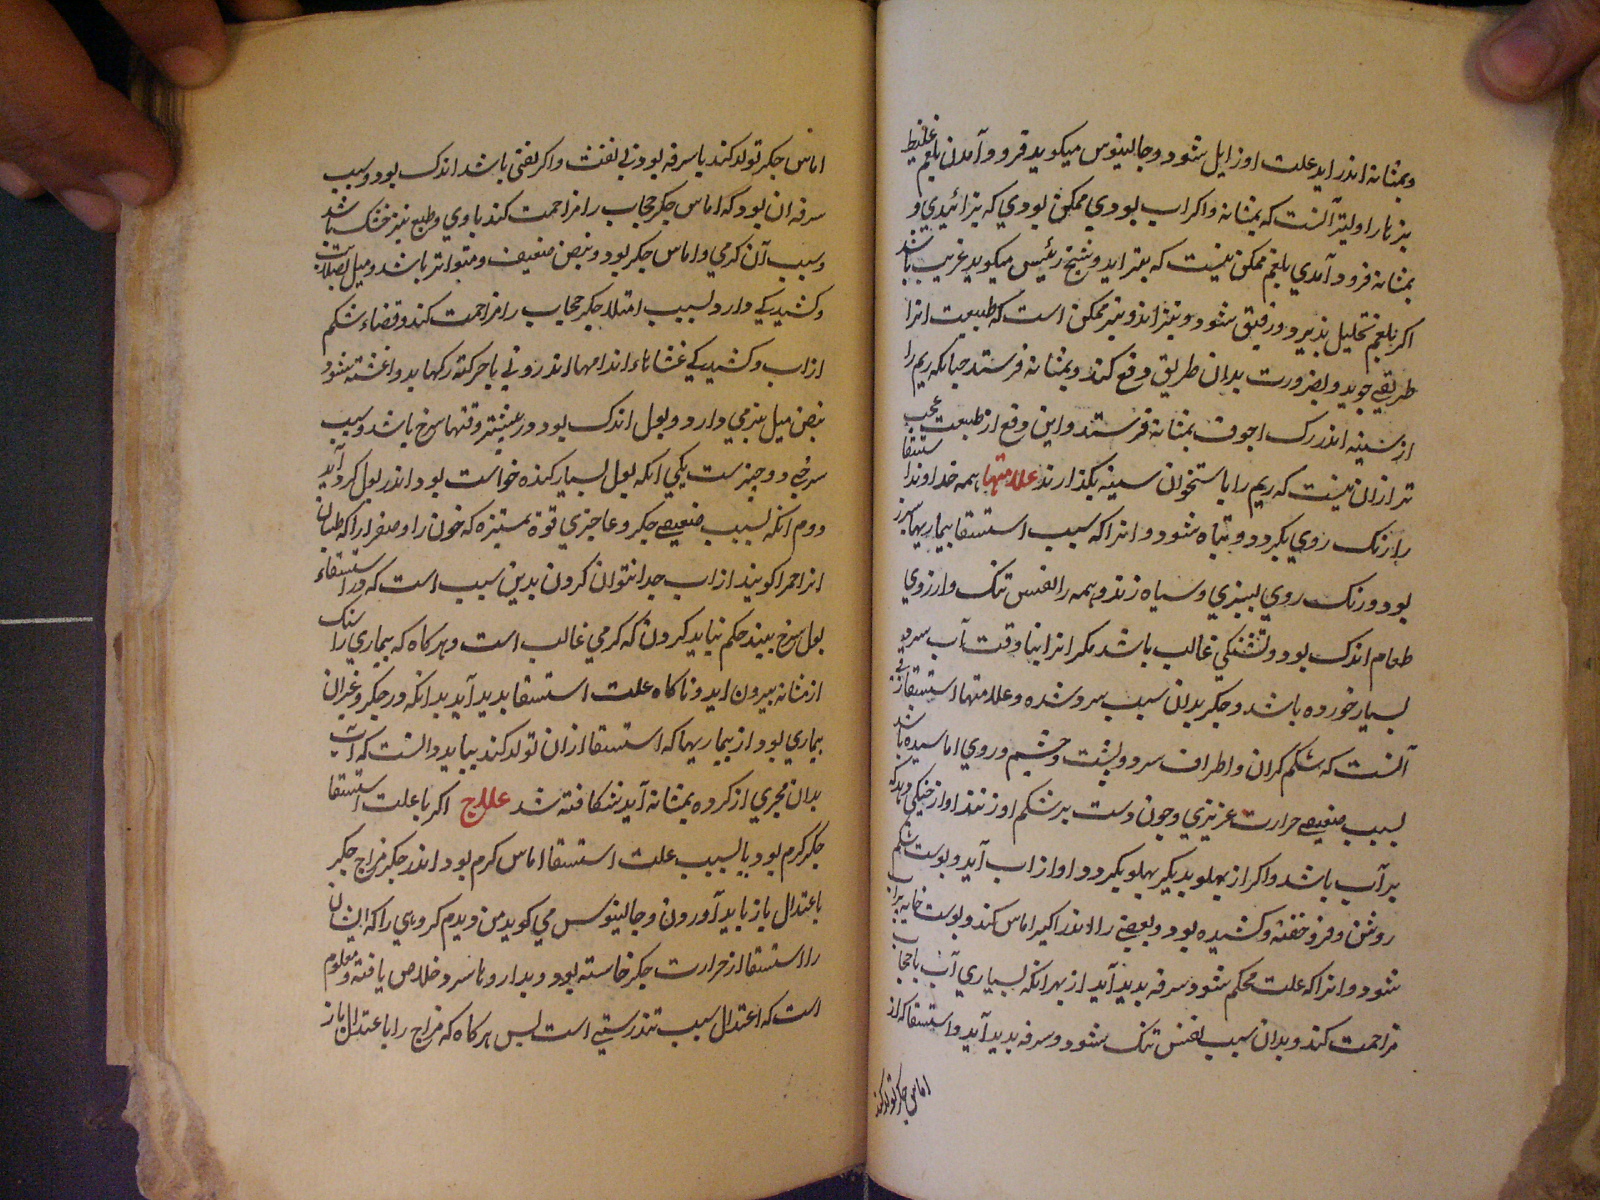 وبمثانه اندر اید علت او زایل شود و جالینوس میکوید فرود آمدن بلغم غلیظ
بزهار اولیتر آنست که بمثانه و اکر اب بودی ممکن بودی که بترائیدی و
بمثانه فرود آمدی بلغم ممکن نیست که بترابد و شیخ رئیس میکوید غریب باشد
اکر بلغم تحلیل پذیرد و رقیق شود و بترابد و نیز ممکن است که طبیعت انرا
طریقی جوید و بضرورت بدان طریق دفع کند و بمثانه فرستد چنانکه ریم را
از سینه اندر رک اجوف بمثانه فرستد و این دفع از طبیعت عجب
تر ازان نیست که ریم را با ستخوان سینه بکذارند علامتها همه خداوندا ستسقا
را رنک روی بکردد و تباه شود و انرا که سبب استسقا بیماریها سپرز
بود و رنک روی بسبزی و سیاه زند و همه را نفس تنک و ارزوی
طعام اندک بود و تشنکی غالب باشد مکر انرا بناوقت آب سرد
بسیار خورده باشد و جکر بدان سبب سرد شده و علامتها استسقا زقی
آنست که شکم کران و اطراف سرد و پشت و چشم و روی اماسیده باشد
بسبب ضعیفی حرارت عزیزی و چون دست بر شکم او زنند اواز خیکی دهد که
پر آب باشد و اکر از پهلو بدیکر پهلو بکردد اواز اب آید و پوست شکم
روشن و فروخفته و کشیده بود و بعضی را اندر اکیر اماس کند و پوست خایه پراب
شود و انرا که علت محکم شود سرفه بدید آید از بهر انکه بسیاری آب با حجاب
مزاحمت کند و بدان سبب نفس تنک شود و سرفه بدید آید و استسقا که از
اماس جکر تولد کند
اماس جکر تولد کند با سرفه بود بی نفث و اکر نفثی باشد اندک بود و سبب
سرفه ان بود که اماس جکر حجاب را مزاحمت کند باوی و طبع نیز خشک باشد
و سبب آن کرمی و اماس جکر بود و نبض ضعیف و متواتر باشد و میل بصلابت
و کشیدیکی دارد بسبب امتلا جکر حجاب را مزاحمت کند و قضاء شکم
از اب و کشیدیکی غشاءاء اندامها اندرونی با حرکته رکها بدو اغشته شود
نبض میل بنرمی دارد و بول اندک بود و بیشتر وقتها سرخ باشد و سبب
سرخی دو چیز ست یکی انکه بول بسیار کنده خواست بود اندر بول کرد آید
دوم انکه بسبب ضعیفی جکر و عاجزی قوة ممیزه که خون را و صفرا را که طبیبان
انرا مرا کویند از اب جدا نتوان کردن بدین سبب است که در استسقاء
بول سرخ بیند حکم نباید کردن که کرمی غالب است و هرکاه که بیماری را سنک
از مثانه بیرون اید و ناکاه علت استسقا بدید آید بدانکه در جکر و غیران
بیماری بود از بیماریها که استسقا ازان تولد کند بباید دانست که اب
بدان مجری از کرده بمثانه آید شکافته شد علاج اکر با علت استسقا
جکر کرم بود یا بسبب علت استسقا اماس کرم بود اندر جکر مزاج جکر
باعتدال باز باید آوردن و جالینوس می کوید من دیدم کروهی را که ایشان
را استسقا از حرارت جکر خاسته بود و بداروها سرد خلاص یافته و معلوم
است که اعتدال سبب تندرستی است پس هرکاه که مزاج را باعتدال باز